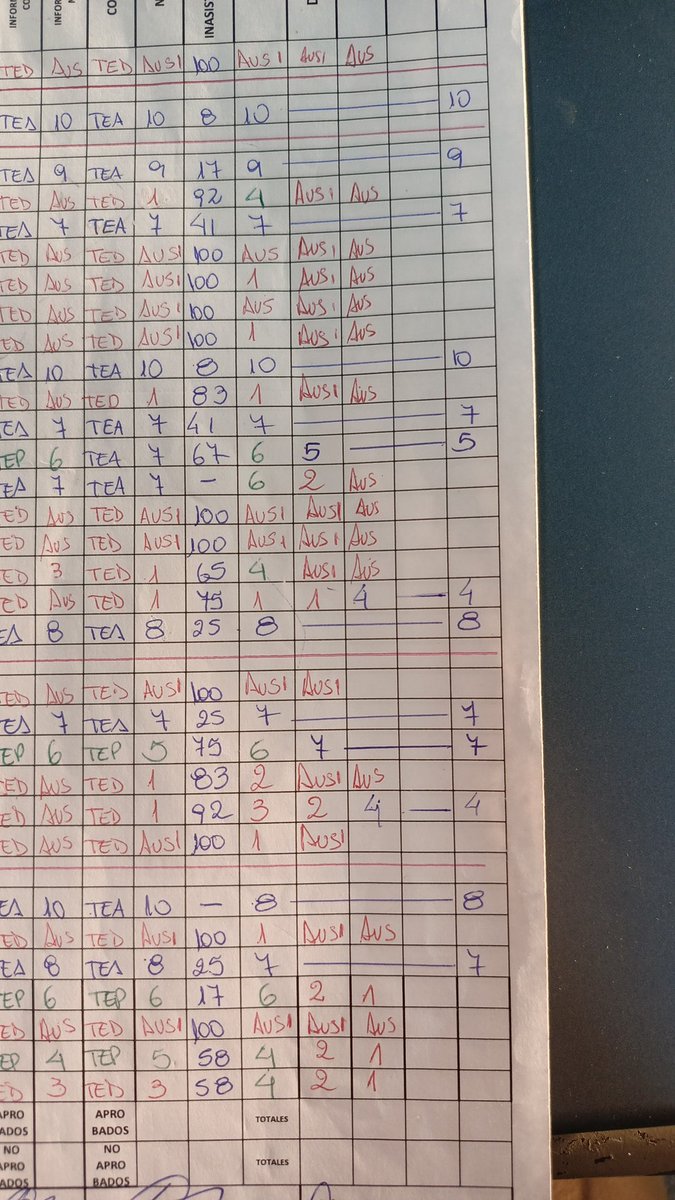 INFOR
CO
INFOR
CO
N
INASIST
D
TED AUS TED AUSI 100 AUSI AUSI AUS
TEA 10 TEA 10 8 10 — 10
TEA 9 TEA 9 17 9 — 9
TED AUS TED 1 92 4 AUSI AUS
TEA 7 TEA 7 41 7 — 7
TED AUS TED AUSI 100 AUS AUSI AUS
TED AUS TED AUSI 100 1 AUSI AUS
TED AUS TED AUSI 100 AUS AUSI AUS
TED AUS TED AUSI 100 1 AUSI AUS
TEA 10 TEA 10 8 10 — 10
TED AUS TED 1 83 1 AUSI AUS
TEA 7 TEA 7 41 7 — 7
TEP 6 TEA 7 67 6 5 — 5
TEA 7 TEA 7 – 6 2 AUS
TED AUS TED AUSI 100 AUSI AUSI AUS
TED AUS TED AUSI 100 AUSI AUSI AUS
TED 3 TED 1 65 4 AUSI AUS
TED AUS TED 1 75 1 1 4 — 4
EA 8 TEA 8 25 8 — 8
TED AUS TED AUSI 100 AUSI AUSI
EA 7 TEA 7 25 7 — 7
EP 6 TEP 5 75 6 7 — 7
ED AUS TED 1 83 2 AUSI AUS
ED AUS TED 1 92 3 2 4 — 4
ED AUS TED AUSI 100 1 AUSI
EA 10 TEA 10 – 8 — 8
ED AUS TED AUSI 100 1 AUSI AUS
EA 8 TEA 8 25 7 — 7
EP 6 TEP 6 17 6 2 1
ED AUS TED AUSI 100 AUSI AUSI AUS
EP 4 TEP 5 58 4 2 1
ED 3 TED 3 58 4 2 1
APRO APRO TOTALES
ADOS BADOS
NO NO
APRO APRO TOTALES
ADOS BADOS